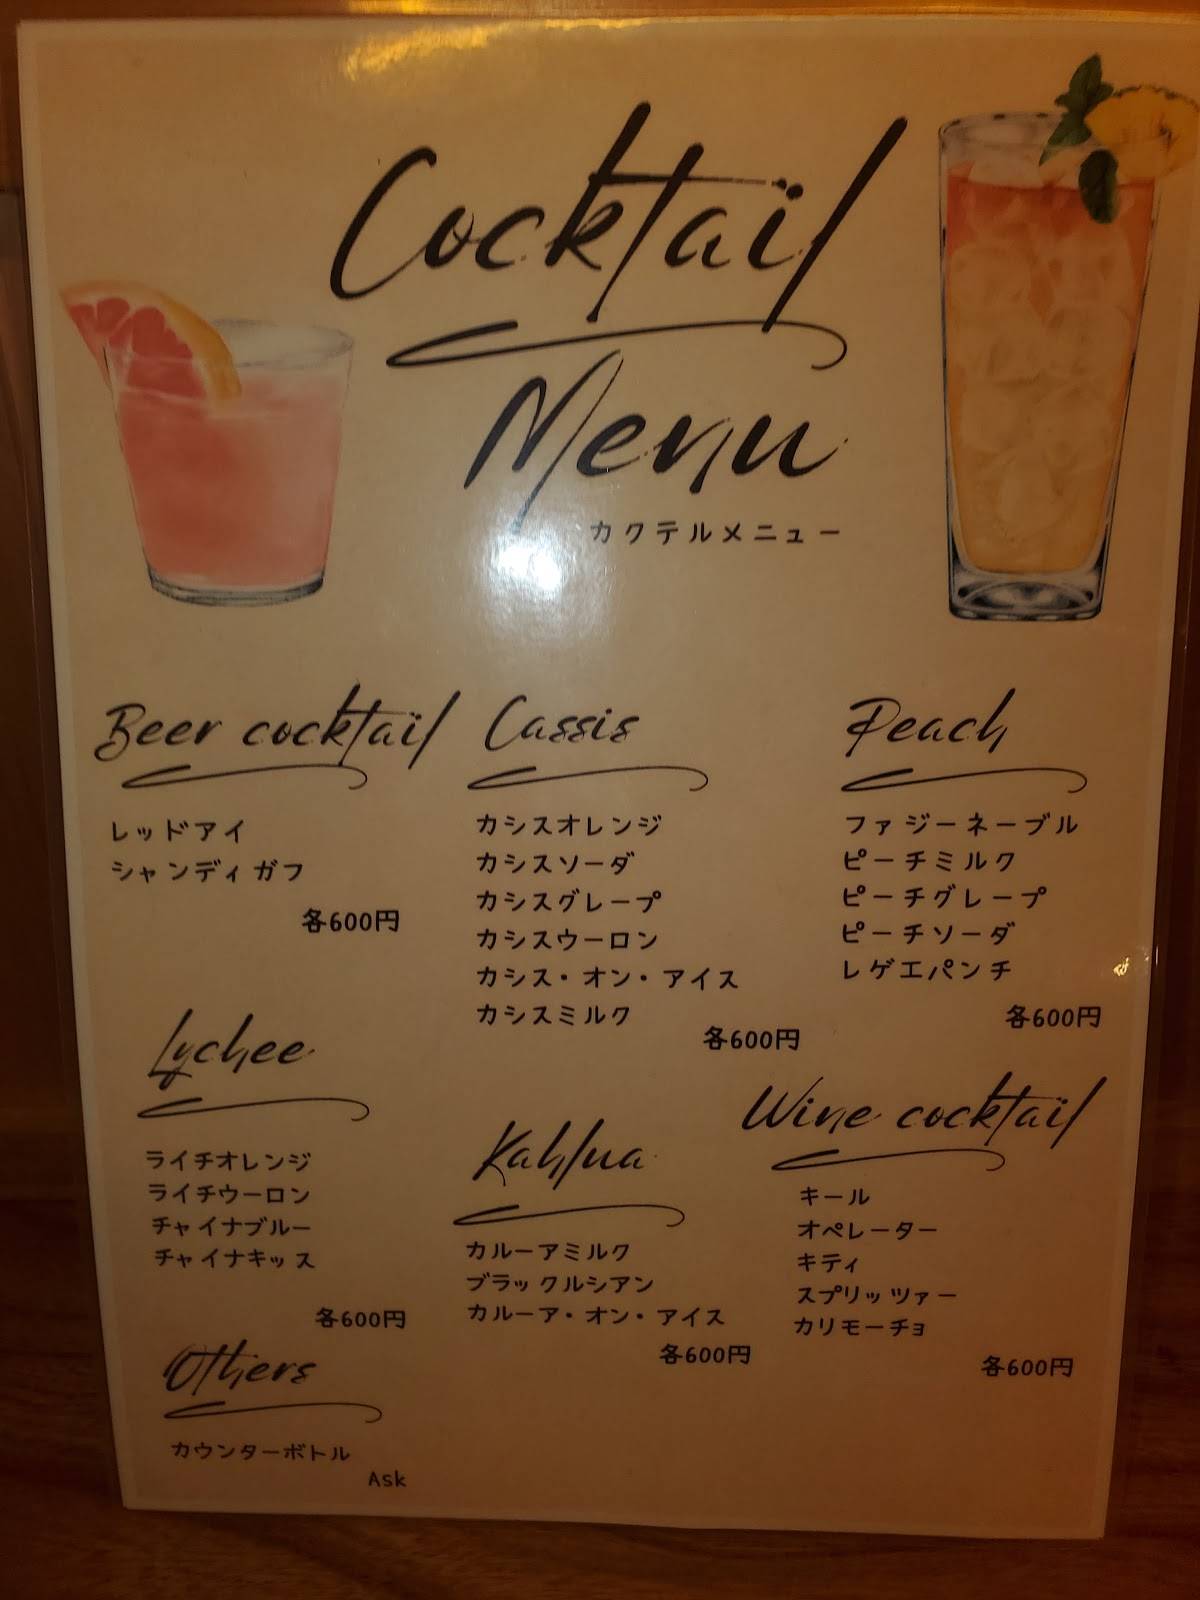 Cocktail
Menu
カクテルメニュー
Beer cocktail
レッドアイ
シャンディガフ
各600円
Cassis
カシスオレンジ
カシスソーダ
カシスグレープ
カシスウーロン
カシス・オン・アイス
カシスミルク
各600円
Peach
ファジーネーブル
ピーチミルク
ピーチグレープ
ピーチソーダ
レゲエパンチ
各600円
Lychee
ライチオレンジ
ライチウーロン
チャイナブルー
チャイナキッス
各600円
Kahlua
カルーアミルク
ブラックルシアン
カルーア・オン・アイス
各600円
Wine cocktail
キール
オペレーター
キティ
スプリッツァー
カリモーチョ
各600円
Others
カウンターボトル
Ask